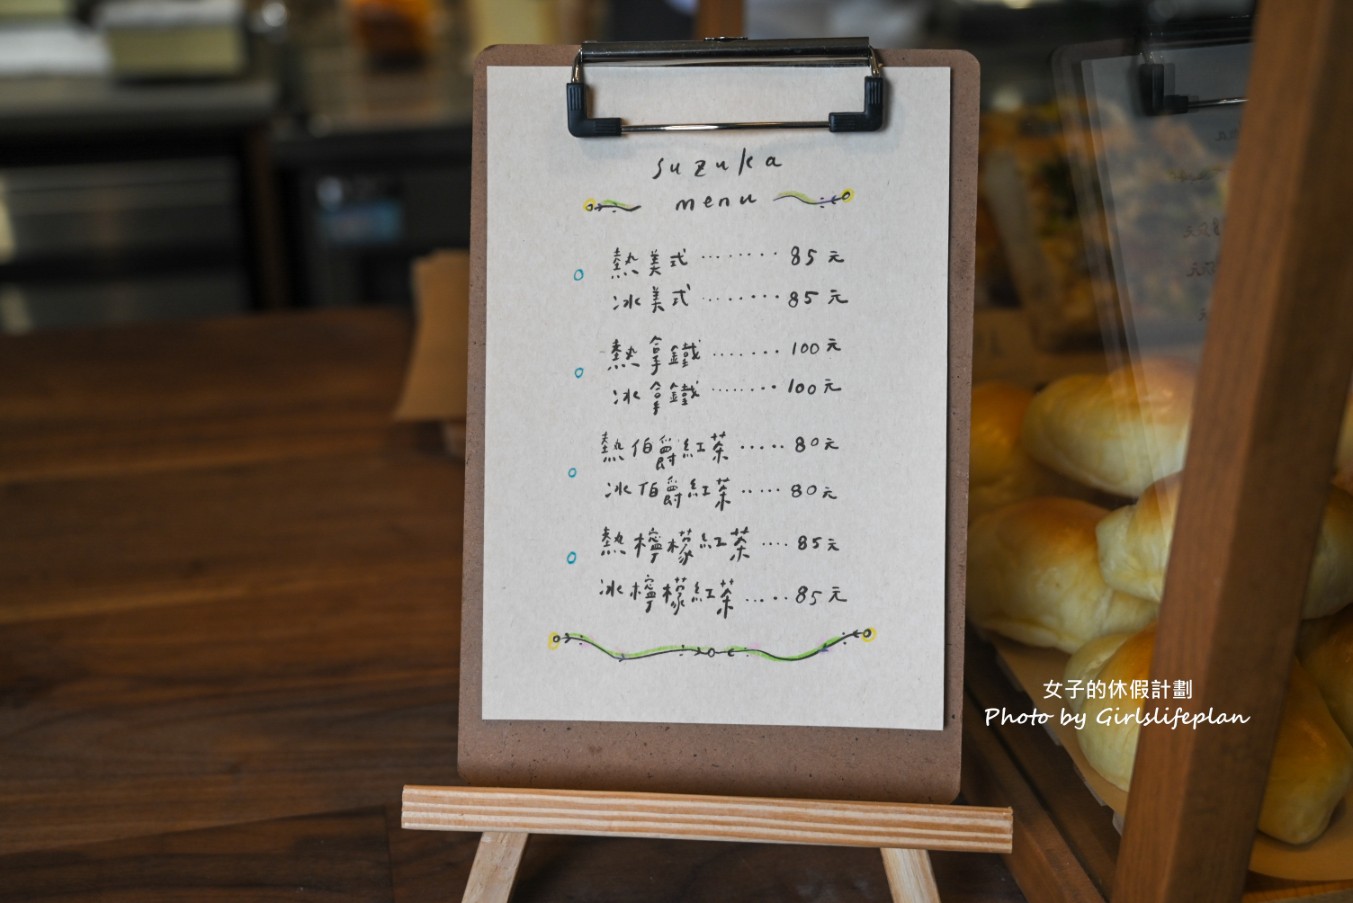 suzuka
menu
熱美式········85元
冰美式········85元
熱拿鐵·······100元
冰拿鐵·······100元
熱伯爵紅茶·····80元
冰伯爵紅茶·····80元
熱檸檬紅茶····85元
冰檸檬紅茶.....85元
女子的休假計劃
Photo by Girlslifeplan